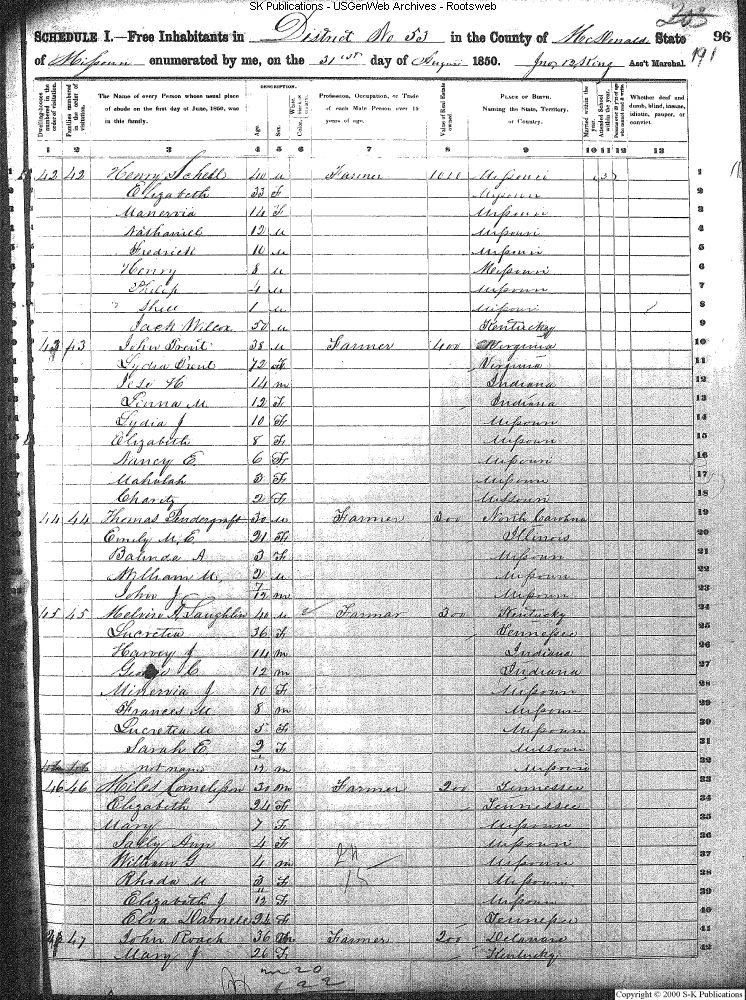 SK Publications - USGenWeb Archives - Rootsweb
203
SCHEDULE I.—Free Inhabitants in District No 53 in the County of McDonald State 96
of Missouri enumerated by me, on the 31st day of August 1850. Ass't Marshal. 191
Dwelling-houses numbered in the order of visitation.
Families numbered in the order of visitation.
The Name of every Person whose usual place of abode on the first day of June, 1850, was in this family.
DESCRIPTION.
Age.
Sex.
Color,
Profession, Occupation, or Trade of each Male Person over 15 years of age.
Value of Real Estate owned.
PLACE OF BIRTH. Naming the State, Territory, or Country.
Married within the year.
Attended School within the year.
Whether deaf and dumb, blind, insane, idiotic, pauper, or convict.
1 2 3 4 5 6 7 8 9 10 11 12 13
1 42 42 Henry Schell 40 M Farmer Missouri 1
2 Elizabeth 33 F Missouri 2
3 Manervia 14 F Missouri 3
4 Nathaniel 12 M Missouri 4
5 Fredrick 10 M Missouri 5
6 Henry 8 M Missouri 6
7 Philip 4 M Missouri 7
8 1 M Missouri 8
9 Jack Wilcox 50 M Kentucky 9
10 43 43 John Trent 38 M Farmer 400 Virginia 10
11 Lydia Trent 72 F Virginia 11
12 14 m Indiana 12
13 12 F Indiana 13
14 Lydia J 10 F Missouri 14
15 Elizabeth 8 F Missouri 15
16 Nancy E 6 F Missouri 16
17 Mahulah 3 F Missouri 17
18 Charity 2 F Missouri 18
19 44 44 Thomas Pendergraft 30 M Farmer 300 North Carolina 19
20 Emily M. C. 21 F Illinois 20
21 Balinda A 3 F Missouri 21
22 William M. 2 M Missouri 22
23 John J 7/12 m Missouri 23
24 45 45 Melvin 40 M Farmer 300 Kentucky 24
25 Lucretia 36 F Tennessee 25
26 Harvey J 14 m Indiana 26
27 George C 12 m Indiana 27
28 Minervia J 10 F Missouri 28
29 Frances M 8 m Missouri 29
30 Lucretia M 5 F Missouri 30
31 Sarah E. 2 F Missouri 31
32 not name 1/12 m Missouri 32
33 46 46 Miles Cornelison 30 M Farmer 200 Tennessee 33
34 Elizabeth 24 F Tennessee 34
35 Mary 7 F Missouri 35
36 Sally Ann 4 F Missouri 36
37 William G 4 m Missouri 37
38 Rhoda M 3 F Missouri 38
39 Elizabeth J F Missouri 39
40 Elva Darnell 24 F Tennessee 40
41 47 John Roach 36 m Farmer 200 Delaware 41
42 Mary J 26 F Kentucky 42
m 20
Copyright © 2000 S-K Publications